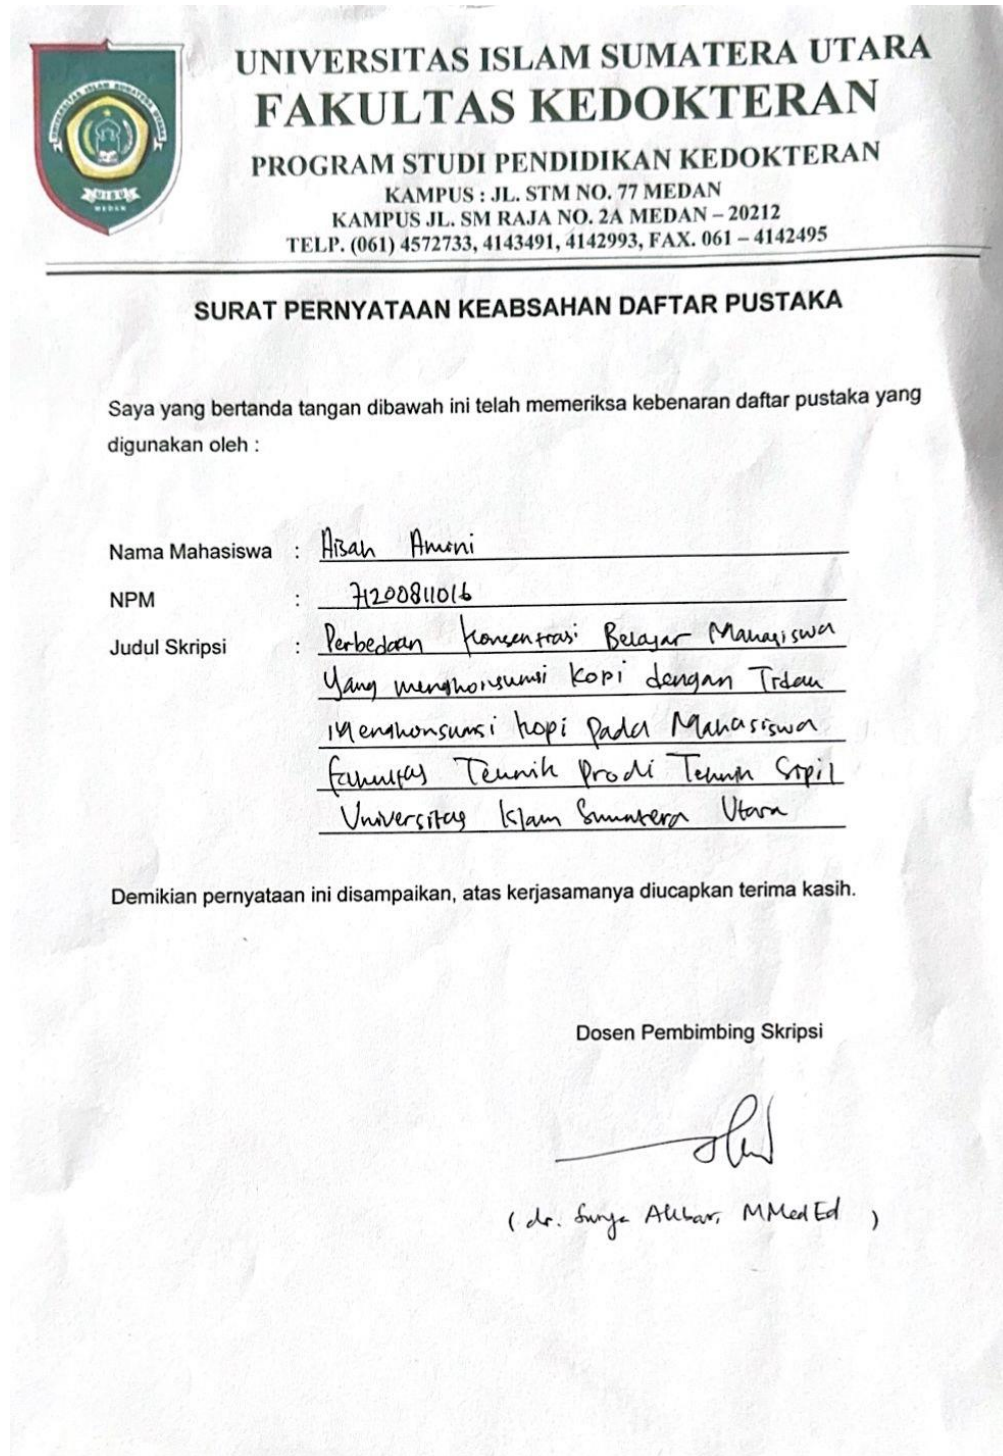 UNIVERSITAS ISLAM SUMATERA UTARA
FAKULTAS KEDOKTERAN
PROGRAM STUDI PENDIDIKAN KEDOKTERAN
KAMPUS : JL. STM NO. 77 MEDAN
KAMPUS JL. SM RAJA NO. 2A MEDAN – 20212
TELP. (061) 4572733, 4143491, 4142993, FAX. 061 – 4142495
UNIVERSITAS ISLAM SUMATERA UTARA
UISU
MEDAN
SURAT PERNYATAAN KEABSAHAN DAFTAR PUSTAKA
Saya yang bertanda tangan dibawah ini telah memeriksa kebenaran daftar pustaka yang
digunakan oleh :
Nama Mahasiswa : Aisah Amini
NPM : 71200811016
Judul Skripsi : Perbedaan Konsentrasi Belajar Mahasiswa
Yang mengkonsumsi Kopi dengan Tidak
Mengkonsumsi kopi Pada Mahasiswa
Fakultas Teknik Prodi Teknik Sipil
Universitas Islam Sumatera Utara
Demikian pernyataan ini disampaikan, atas kerjasamanya diucapkan terima kasih.
Dosen Pembimbing Skripsi
(dr. Surya Akbar, MMedEd)